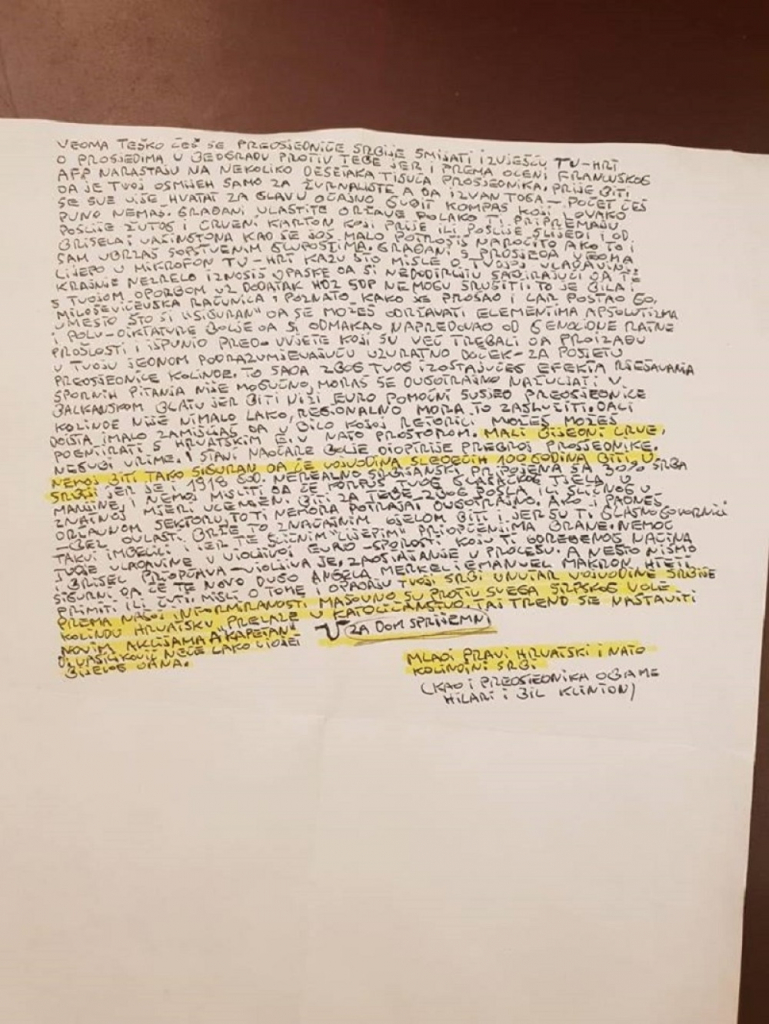 VEOMA TEŠKO ĆEŠ SE PREDSJEDNIČE SRBIJE SMIJATI IZVJEŠĆU TV-HRT
O PROSJEDIMA U BEOGRADU PROTIV TEBE JER I PREMA OCENI FRANCUSKOG
AFP NARASTAJU NA NEKOLIKO DESETAKA TISUĆA PROSJEDNIKA. PRIJE BITI
DA JE TVOJ OSMIJEH SAMO ZA ŽURNALISTE A DA IZVAN TOGA - POČET ĆEŠ
SE SVE VIŠE HVATAT ZA GLAVU OČAJNO GUBIT KOMPAS KOJI IOVAKO
PUNO NEMAŠ. GRAĐANI VLASTITE DRŽAVE POLAKO TI PRIPREMAJU
POSLIJE ŽUTOG I CRVENI KARTON KOJI PRIJE ILI POSLIJE SLIJEDI I OD
BRISELA I VAŠINGTONA KAO SE JOŠ MALO POTROŠIŠ NAROČITO AKO TO I
SAM UBRZAŠ SOPSTVENIM GLUPOSTIMA. GRAĐANI S PROSJEDA VEOMA
LIJEPO U MIKROFON TV-HRT KAŽU ŠTO MISLE O TVOJOJ VLADAVINI.
KRAJNJE NEZRELO IZNOSIŠ OPASKE DA SI NEDODIRLJIV SAGIRAJUĆI DA TE
S TVOJOM OPORBOM UZ DODATAK HDZ SDP NEMOGU SRUŠITI. TO JE BILA I
MILOŠEVIĆEVSKA RAČUNICA, POZNATO KAKO JE PROŠAO I CAR POSTAO GO.
UMESTO ŠTO SI "SIGURAN" DA SE MOŽEŠ ODRŽAVATI ELEMENTIMA APSOLUTIZMA
I POLU-DIKTATURE BOLJE DA SI ODMAKAO NAPREDOVAO OD GENOCIDNE RATNE
PROŠLOSTI I ISPUNIO PRED-UVIJETE KOJI SU VEĆ TREBALI DA PROIZAĐU
U TVOJU JEDNOM PODRAZUMJEVAJUĆU UZURATNO DOČEK - ZA POSJETU
PREDSJEDNICE KOLINDE. TO SADA ZBOG TVOG IZOSTAJUĆEG EFEKTA RJEŠAVANJA
SPORNIH PITANJA NIJE MOGUĆNO, MORAŠ SE DUGOTRAJNO NAČULJATI U
BALKANSKOM BLATU JER BITI NIŽI EURO POMOĆNI SUSJED PREDSJEDNICE
KOLINDE NIJE NIMALO LAKO, REGIONALNO MORA TO ZASLUŽITI. DALI
DOISTA IMALO ZAMIŠLJAŠ DA U BILO KOJOJ RETORICI MOŽEŠ MOŽEŠ
POENTIRATI S HRVATSKIM E.U. NATO PROSTOROM. MALI BIJEDNI CRVE,
NEGUBI VRIJME. I STAVI NAOČARE BOLJE DIOPTRIJE PREBROJ PROSJEDNIKE.
NEMOJ BITI TAKO SIGURAN DA ĆE VOJVODINA SLEDEĆIH 100 GODINA BITI. U
SRBIJI JER JE I 1918 GOD. NEREALNO SRBIJANSKI PRIPOJENA SA 30% SRBA
MANJINE, I NEMOJ MISLITI DA ĆE TVOG GLASAČKOG TJELA U
ZNATNOJ MJERI UCENJENI. BITI ZA TEBE ZBOG POSLA ILI SLIČNOG U
DRŽAVNOM SEKTORU, TO TI NEMORA POTRAJAT DUGOTRAJNO. AKO I PADNEŠ
-BEŽ OVLASTI. BRŽE TO ZNAČAJNIM DJELOM BITI I JER SU TI GLASNOGOVORNICI
TAKVI IMBECILI I JER TE SLIČNIM "LIJEPIM" PRIOPĆENJIMA BRANE. NEMOĆ
TVOJE VLADAVINE U VIDLJIVOJ EURO-SPOROSTI KOJU TI ODREĐENOG NAČINA
I BRISEL PRIOPĆAVA - VIDLJIVA JE, ZAOSTAJANJE U PROCESU. A NEŠTO NISMO
SIGURNI DA ĆE TE NOVO DUGO ANGELA MERKEL I EMANUEL MAKRON HTETI
PRIMITI ILI ČUTI. MISLI O TOME I OPADAJU TVOJI SRBI UNUTAR VOJVODINE SRBIJE
PREMA NAŠOJ INFORMIRANOSTI MASOVNO SU PROTIV SVEGA SRPSKOG VOLE
KOLINDU HRVATSKU PRELAZE U KATOLIČANSTVO. TAJ TREND SE NASTAVITI
NOVIM AKCIJAMA A KAPETAN
D. VASILJKOVIĆ NEĆE LAKO VIDJET
BIJELOG DANA.
ZA DOM SPRIJEMNI
MLADI PRAVI HRVATSKI I NATO
KOLINDINI SRBI
(KAO I PREDSJEDNIKA OBAME
HILARI I BIL KLINTON)